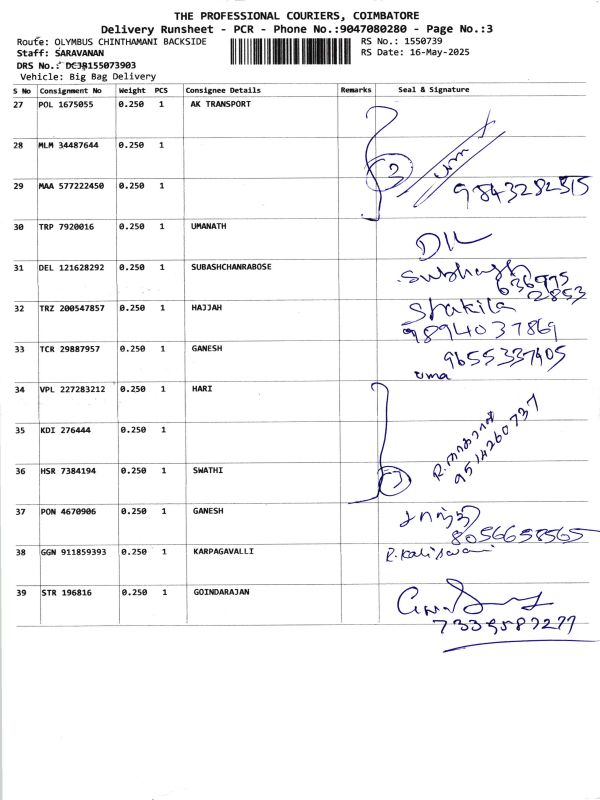 THE PROFESSIONAL COURIERS, COIMBATORE
Delivery Runsheet - PCR - Phone No.:9047080280 - Page No.:3
Route: OLYMBUS CHINTHAMANI BACKSIDE RS No.: 1550739
Staff: SARAVANAN RS Date: 16-May-2025
DRS No.:
Vehicle: Big Bag Delivery
S No Consignment No Weight PCS Consignee Details Remarks Seal & Signature
27 POL 1675055 0.250 1 AK TRANSPORT
28 MLM 34487644 0.250 1
3
29 MAA 577222450 0.250 1
9843282315
30 TRP 7920016 0.250 1 UMANATH
31 DEL 121628292 0.250 1 SUBASHCHANRABOSE
Subhash
636975
2853
32 TRZ 200547857 0.250 1 HAJJAH
Shakila
9894037869
33 TCR 29887957 0.250 1 GANESH
9655337405
uma
34 VPL 227283212 0.250 1 HARI
9514260737
35 KDI 276444 0.250 1
36 HSR 7384194 0.250 1 SWATHI
37 PON 4670906 0.250 1 GANESH
சாந்தி
8056658565
38 GGN 911859393 0.250 1 KARPAGAVALLI
R. Kaliswami
39 STR 196816 0.250 1 GOINDARAJAN
7339587277